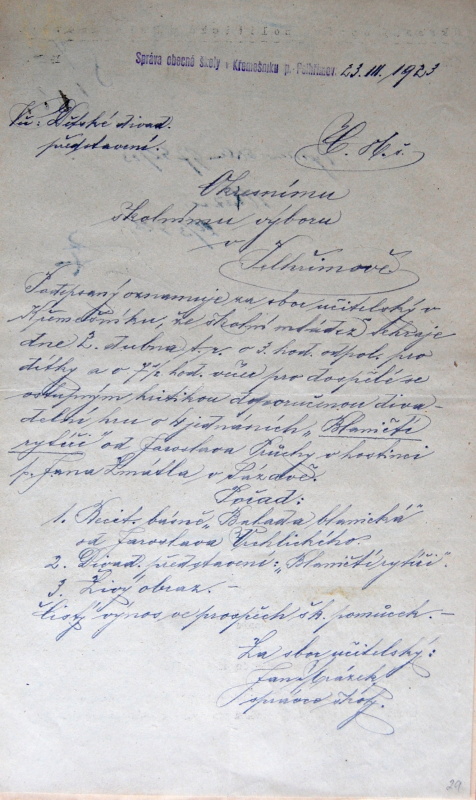 Správa obecné školy v Křemešníku p. Pelhřimov. 23. III. 1923
Dětské divad.
představení.
Okresnímu
školnímu výboru
v
Pelhřimově
Podepsaný oznamuje za sbor učitelský v
Křemešníku, že školní mládež sehraje
dne 2. dubna t. r. o 3. hod. odpol. pro
dítky a o 7½ hod. večer pro dospělé se
vstupným kritikou doporučenou diva-
delní hru o 4 jednáních „Blaničtí
rytíři" od Jaroslava Průchy v hostinci
p. Jana Zmátla v
Pořad:
1. Recit. básně „Balada blanická"
od Jaroslava Vrchlického.
2. Divad. představení: „Blaničtí rytíři".
3. Živý obraz. –
Čistý výnos ve prospěch šk. pomůcek. –
Za sbor učitelský:
Jan
správce školy.
29